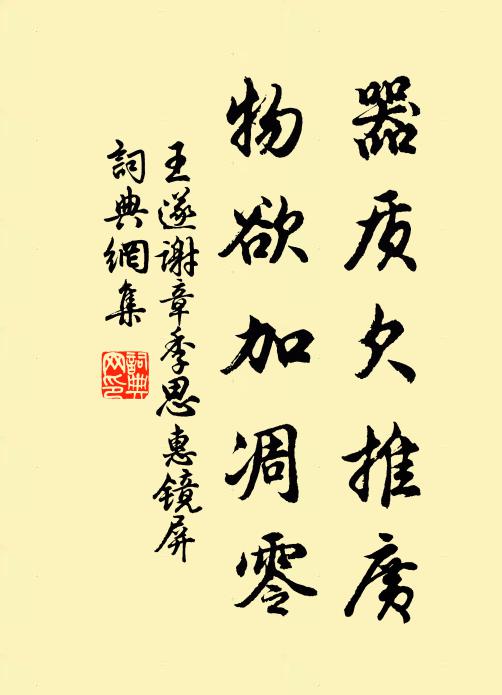 器质欠推廣
物欲加凋零
王遂谢章季思惠镜屏
詞典網集
詞典網印